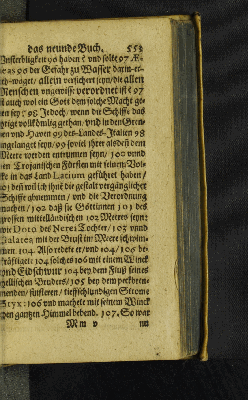 das neunde Buch. 553
Unsterbligkeit 96 haben? und solte 97 Æ-
neas 96 der Gefahr zu Wasser darin-er-
sich-waget/ allein versichert seyn/die allen
Menschen ungewisse verordnet ist? 97
ist auch wol ein Gott dem solche Macht ge-
ben sey? 98 Jedoch/ wenn die Schiffe das
ihrige volkömlig gethan/ und in den Gren-
zen und Haven 99 des-Landes-Italien 98
angelanget seyn/99 so viel ihrer als deñ dem
Meere worden entrunnen seyn/ 100 und
den Trojanischen Fürsten mit seinem Vol-
ke in das Land Latium geführet haben/
101 deñ wil ich ihnẽ die gestalt vergänglicher
Schiffe abnemmen/ und die Verordnung
machen/ 102 daß sie Göttinnen 101 des
grossen mittelländischen 102 Meeres seyn:
wie Doto des Nerei Tochter/ 103 und
Galatea mit der Brust im Meere schwim-
men. 104 Also redete er/ und 104/ 105 be-
kräftiget: 104 solches 106 mit einem Winck
und Eidschwur 104 bey dem Fluß seines
hellischen Bruders/ 105 bey dem peckbren-
nenden/ finsteren/ tieffschlundigen Strome
Styx: 106 und machete mit seinem Winck
den gantzen Himmel bebend. 107. So war
M m v
nu